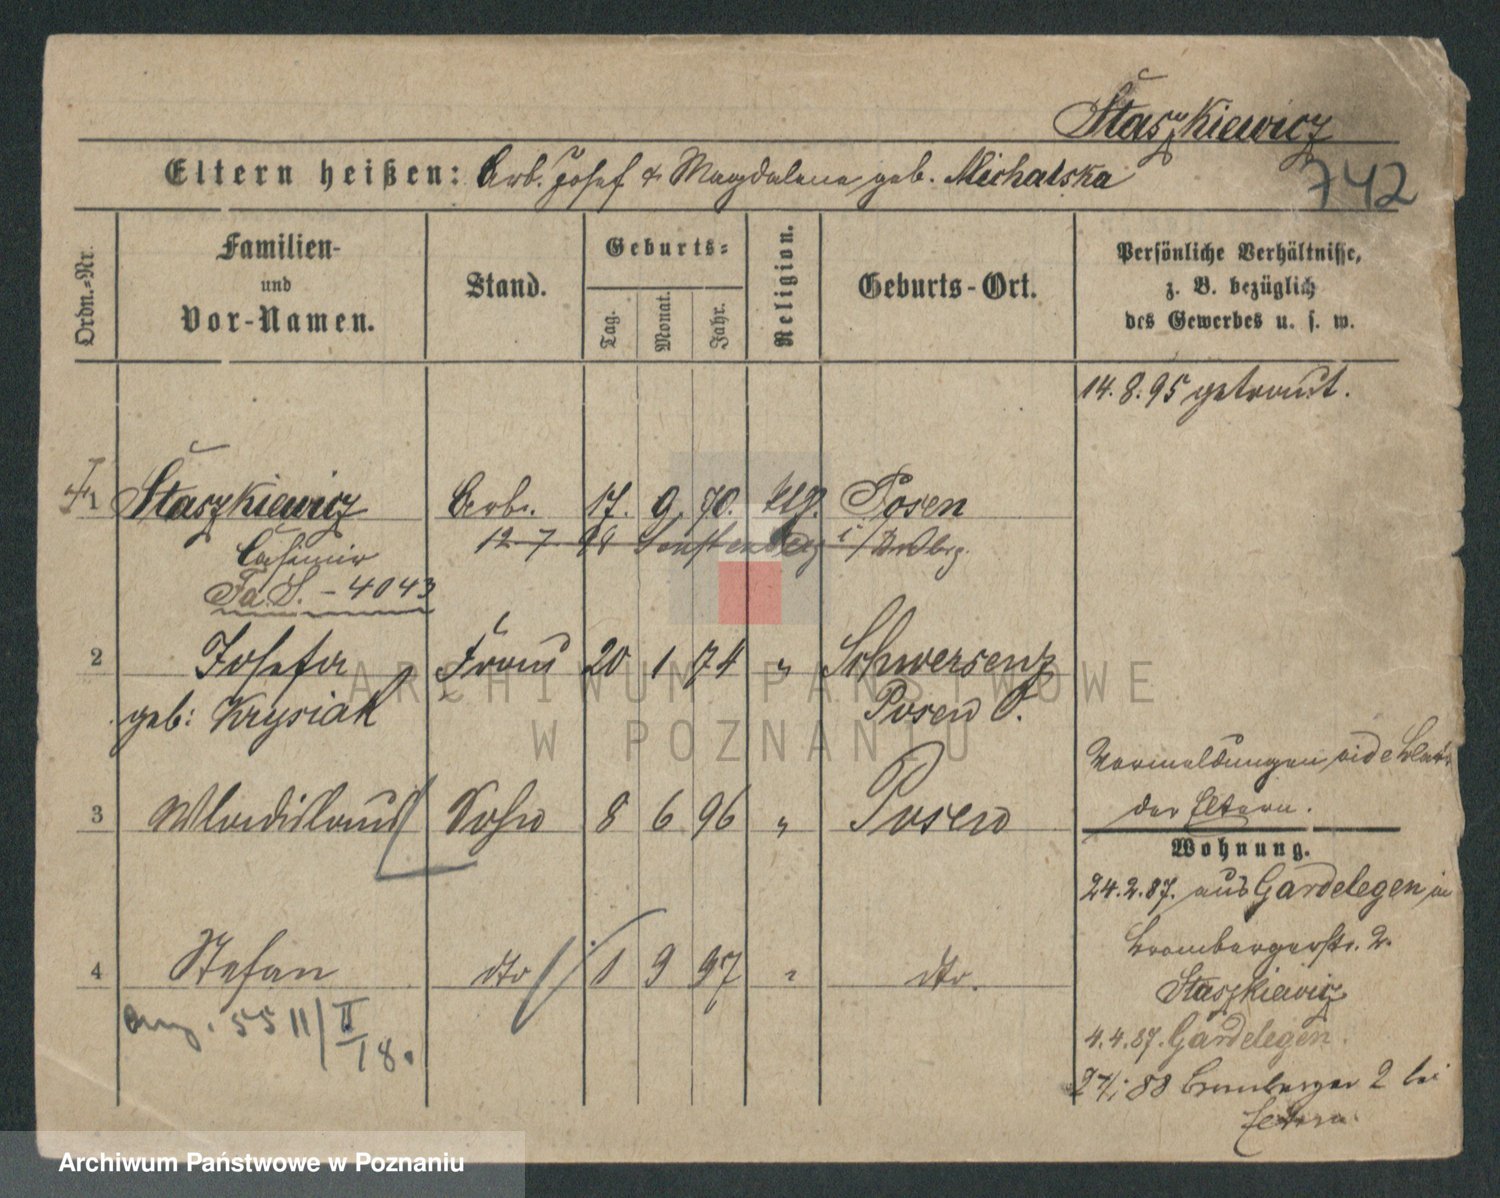 Staszkiewicz
Eltern heißen: Arb. Josef & Magdalena geb. Michalska
742
Ordn.-Nr.
Familien-
und
Vor-Namen.
Stand.
Geburts-
Tag.
Monat.
Jahr.
Religion.
Geburts-Ort.
Persönliche Verhältnisse,
z. B. bezüglich
des Gewerbes u. s. w.
14.8.95 getraut.
1 Staszkiewicz Arb. 17. 9. 70. Posen
Casimir
12. 7. 98 Senftenberg i/
Fa. S. - 4043
2 Josefa Frau 20 1 74 " Schwersenz
geb: Krysiak Posen O.
3 Wladislaus Sohn 8 6 96 " Posen
Vermeldungen vide
der Eltern.
Wohnung.
24.2.87. aus Gardelegen in
Brombergerstr. 2.
Staszkiewicz
4 Stefan dto 1 9 97 " dto.
4.4.87. Gardelegen.
5511/II
18.
88 Bromberger 2 bei
Eltern.
ARCHIWUM PAŃSTWOWE
W POZNANIU
Archiwum Państwowe w Poznaniu